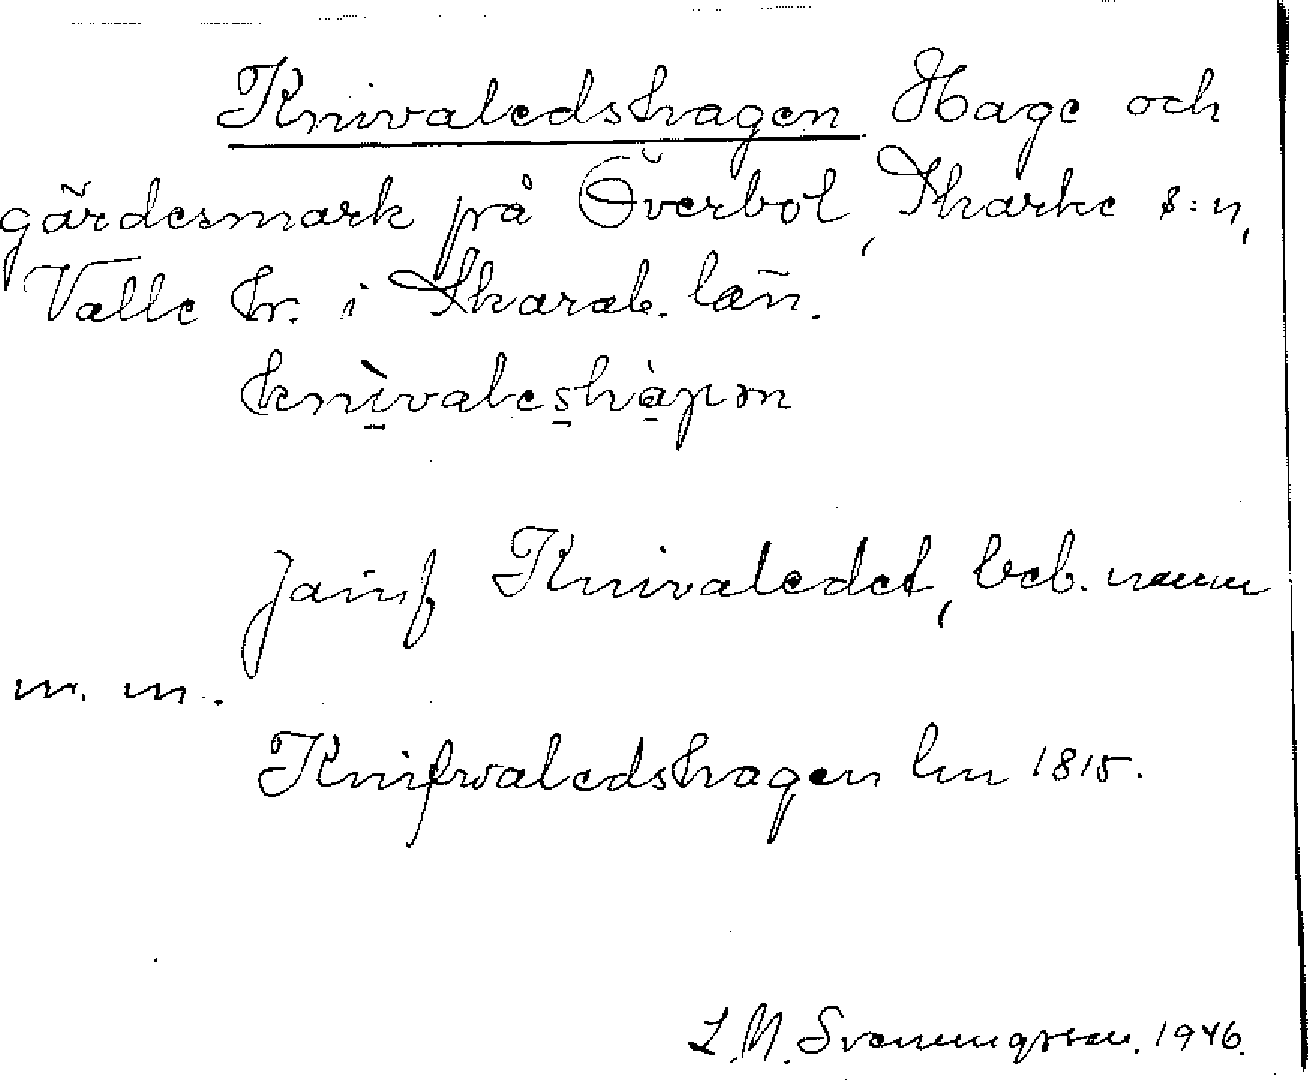 Knivaledshagen Hage och
gärdesmark på Överbol, Skarke s:n,
Valle hr. i Skarab. län.
knìvaleshàgen
Jämf Knivaledet, beb. namn
m. m.
Knifvaledshagen lm 1815.
L. M. Svenungsson. 1946.